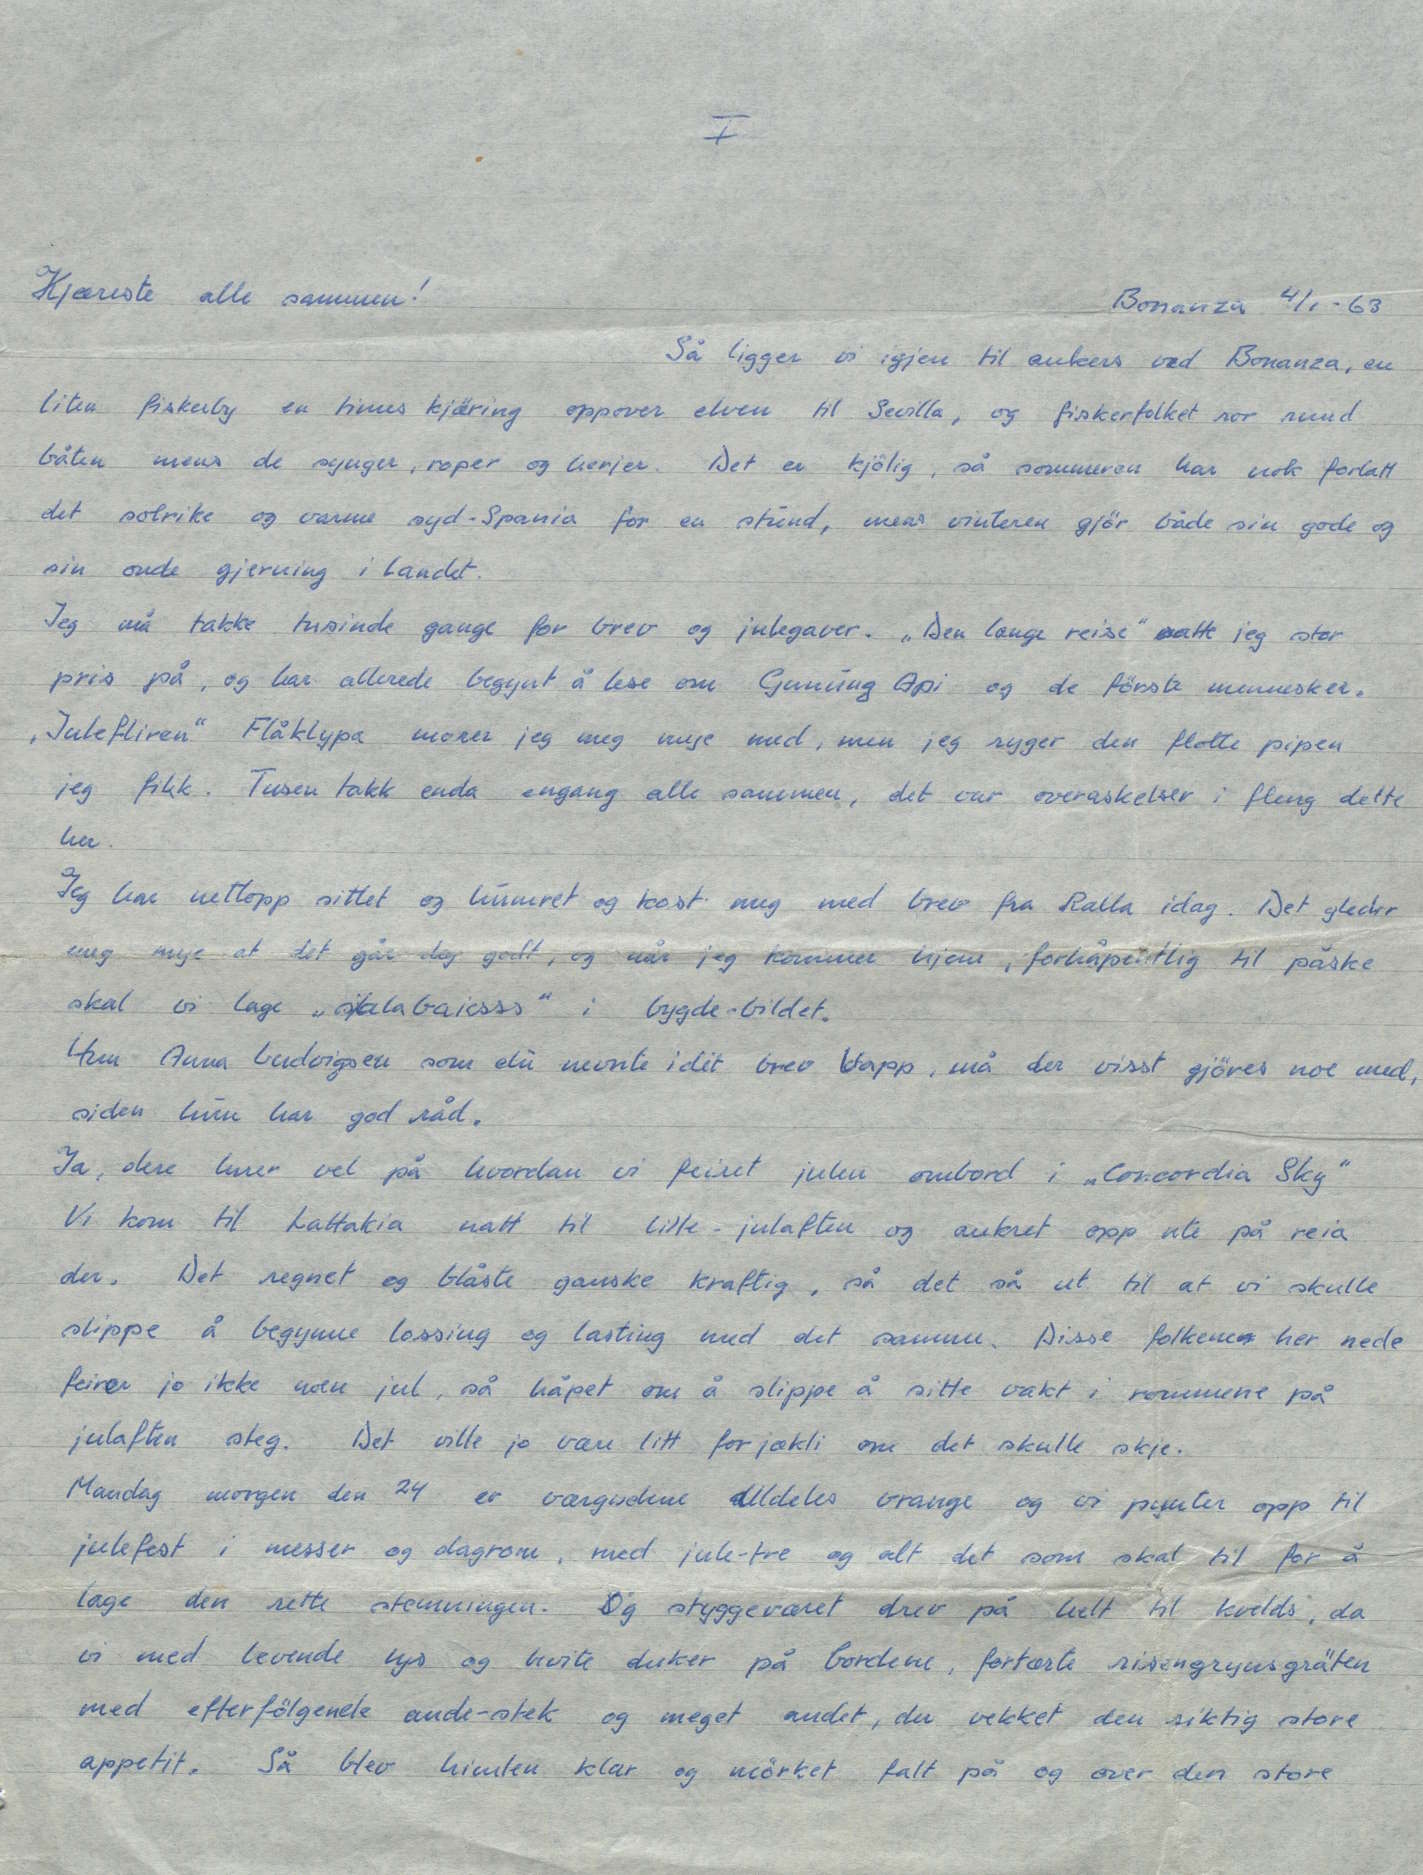 I
Kjæreste alle sammen!
Bonanza 4/1-63
Så ligger vi igjen til ankers ved Bonanza, en
liten fiskerby en times kjøring oppover elven til Sevilla, og fiskerfolket ror rund
båten mens de synger, roper og herjer. Det er kjölig, så sommeren har nok forlatt
det solrike og varme syd-Spania for en stund, mens vinteren gjör både sin gode og
sin onde gjerning i landet.
Jeg må takke tusinde gange for brev og julegaver. „Den lange reise" satte jeg stor
pris på, og har allerede begynt å lese om Gunung Api og de förste mennesker.
„Julefliren" Flåklypa morer jeg meg mye med, men jeg ryger den flotte pipen
jeg fikk. Tusen takk enda engang alle sammen, det var overaskelser i fleng dette
her.
Jeg har nettopp sittet og humret og kost meg med brev fra Kalla idag. Det gleder
meg mye at det går deg godt, og når jeg kommer hjem, forhåpentlig til påske
skal vi lage „sjalabaiesss" i bygde-bildet.
Hun Anna Ludvigsen som du nevnte i dit brev, må der visst gjöres noe med,
siden hun har god råd.
Ja, dere lurer vel på hvordan vi feiret julen ombord i „Concordia Sky"
Vi kom til Lattakia natt til lille-julaften og ankret opp ute på reia
der. Det regnet og blåste ganske kraftig, så det så ut til at vi skulle
slippe å begynne lossing og lasting med det samme. Disse folkene her nede
feirer jo ikke noen jul, så håpet om å slippe å sitte vakt i rommene på
julaften steg. Det ville jo være litt for jækli om det skulle skje.
Mandag morgen den 24 er værgudene aldeles vrange og vi pynter opp til
julefest i messer og dagrom, med jule-tre og alt det som skal til for å
lage den rette stemningen. Og styggeværet drev på helt til kvelds, da
vi med levende lys og hvite duker på bordene, fortærte risengrynsgröten
med efterfölgende ande-stek og meget andet, der vekket den riktig store
appetit. Så blev himlen klar og mörket falt på og over den store